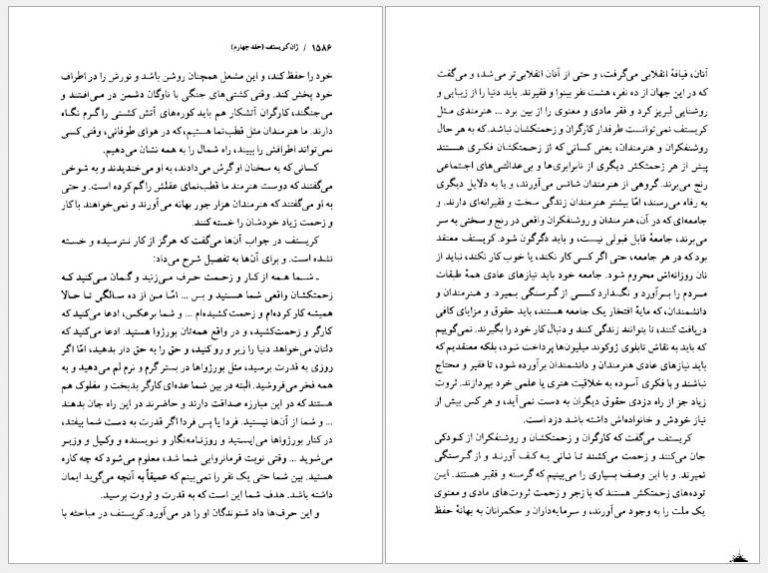 ۱۵۸۶ / ژان کریستف (جلد چهارم)
خود را حفظ کند، و این مشعل همچنان روشن باشد و نورش را در اطراف
خود پخش کند. وقتی کشتی‌های جنگی با ناوگان دشمن در می‌افتند و
می‌جنگند، کارگران آتشکار هم باید کوره‌های آتش کشتی را گرم نگاه
دارند. ما هنرمندان مثل قطب‌نما هستیم، که در هوای طوفانی، وقتی کسی
نمی‌تواند اطرافش را ببیند، راه شمال را به همه نشان می‌دهیم.
کسانی که به سخنان او گرش می‌دادند، به او می‌خندیدند و به شوخی
می‌گفتند که دوست هنرمند ما قطب‌نمای عقلش را گم کرده است. و حتی
به او می‌گفتند که هنرمندان هزار جور بهانه می‌آورند و نمی‌خواهند با کار
و زحمت زیاد خودشان را خسته کنند.
کریستف در جواب آن‌ها می‌گفت که هرگز از کار نترسیده و خسته
نشده است. و برای آن‌ها به تفصیل شرح می‌داد:
ـ شما همه از کار و زحمت حرف می‌زنید و گمان می‌کنید که
زحمتکشان واقعی شما هستید و بس ... امّا من از ده سالگی تا حالا
همیشه کار کرده‌ام و زحمت کشیده‌ام ... و شما برعکس، ادعا می‌کنید که
کارگر و زحمت‌کشید، و در واقع همه‌تان بورژوا هستید. ادعا می‌کنید که
دلتان می‌خواهد دنیا را زیر و رو کنید، و حق را به حق دار بدهید، امّا اگر
روزی به قدرت برسید، مثل بورژواها در بستر گرم و نرم لم می‌دهید و به
همه فخر می‌فروشید. البته در بین شما عده‌ای کارگر بدبخت و مفلوک هم
هستند که در این مبارزه صداقت دارند و حاضرند در این راه جان بدهند
... و شما از آن‌ها نیستید. فردا یا پس فردا اگر قدرت به دست شما بیفتد،
در کنار بورژواها می‌ایستید و روزنامه‌نگار و نویسنده و وکیل و وزیر
می‌شوید ... وقتی نوبت فرمانروایی شما شد، معلوم می‌شود که چه کاره
هستید. بین شما حتی یک نفر را نمی‌بینم که عمیقاً به آنچه می‌گوید ایمان
داشته باشد. هدف شما این است که به قدرت و ثروت برسید.
و این حرف‌ها داد شنوندگان او را در می‌آورد. کریستف در مباحثه با
آنان، قیافهٔ انقلابی می‌گرفت، و حتی از آنان انقلابی‌تر می‌شد، و می‌گفت
که در این جهان از ده نفر، هشت نفر بینوا و فقیرند. باید دنیا را از زیبایی و
روشنایی لبریز کرد و فقر مادی و معنوی را از بین برد ... هنرمندی مثل
کریستف نمی‌توانست طرفدار کارگران و زحمتکشان نباشد. که به هر حال
روشنفکران و هنرمندان، یعنی کسانی که از زحمتکشان فکری هستند
پیش از هر زحمتکش دیگری از نابرابری‌ها و بی‌عدالتی‌های اجتماعی
رنج می‌برند. گروهی از هنرمندان شانس می‌آورند، و یا به دلایل دیگری
به رفاه می‌رسند، امّا بیشتر هنرمندان زندگی سخت و فقیرانه‌ای دارند. و
جامعه‌ای که در آن، هنرمندان و روشنفکران واقعی در رنج و سختی به سر
می‌برند، جامعهٔ قابل قبولی نیست، و باید دگرگون شود. کریستف معتقد
بود که در هر جامعه، حتی اگر کسی کار نکند، یا خوب کار نکند، نباید از
نان روزانه‌اش محروم شود. جامعه خود باید نیازهای عادی همهٔ طبقات
مردم را برآورد و نگذارد کسی از گرسنگی بمیرد. و هنرمندان و
دانشمندان، که مایهٔ افتخار یک جامعه هستند، باید حقوق و مزایای کافی
دریافت کنند، تا بتوانند زندگی کنند و دنبال کار خود را بگیرند. نمی‌گوییم
که باید به نقاش تابلوی ژوکوند میلیون‌ها پرداخت شود، بلکه معتقدیم که
باید نیازهای عادی هنرمندان و دانشمندان برآورده شود، تا فقیر و محتاج
نباشند و با فکری آسوده به خلاقیت هنری یا علمی خود بپردازند. ثروت
زیاد جز از راه دزدی حقوق دیگران به دست نمی‌آید، و هر کس بیش از
نیاز خودش و خانواده‌اش داشته باشد دزد است.
کریستف می‌گفت که کارگران و زحمتکشان و روشنفکران از کودکی
جان می‌کنند و زحمت می‌کشند تا نانی به کف آورند و از گرسنگی
نمیرند. و با این وصف بسیاری را می‌بینیم که گرسنه و فقیر هستند. این
توده‌های زحمتکش هستند که با زجر و زحمت ثروت‌های عادی و معنوی
یک ملت را به وجود می‌آورند، و سرمایه‌داران و حکمرانان به بهانهٔ حفظ